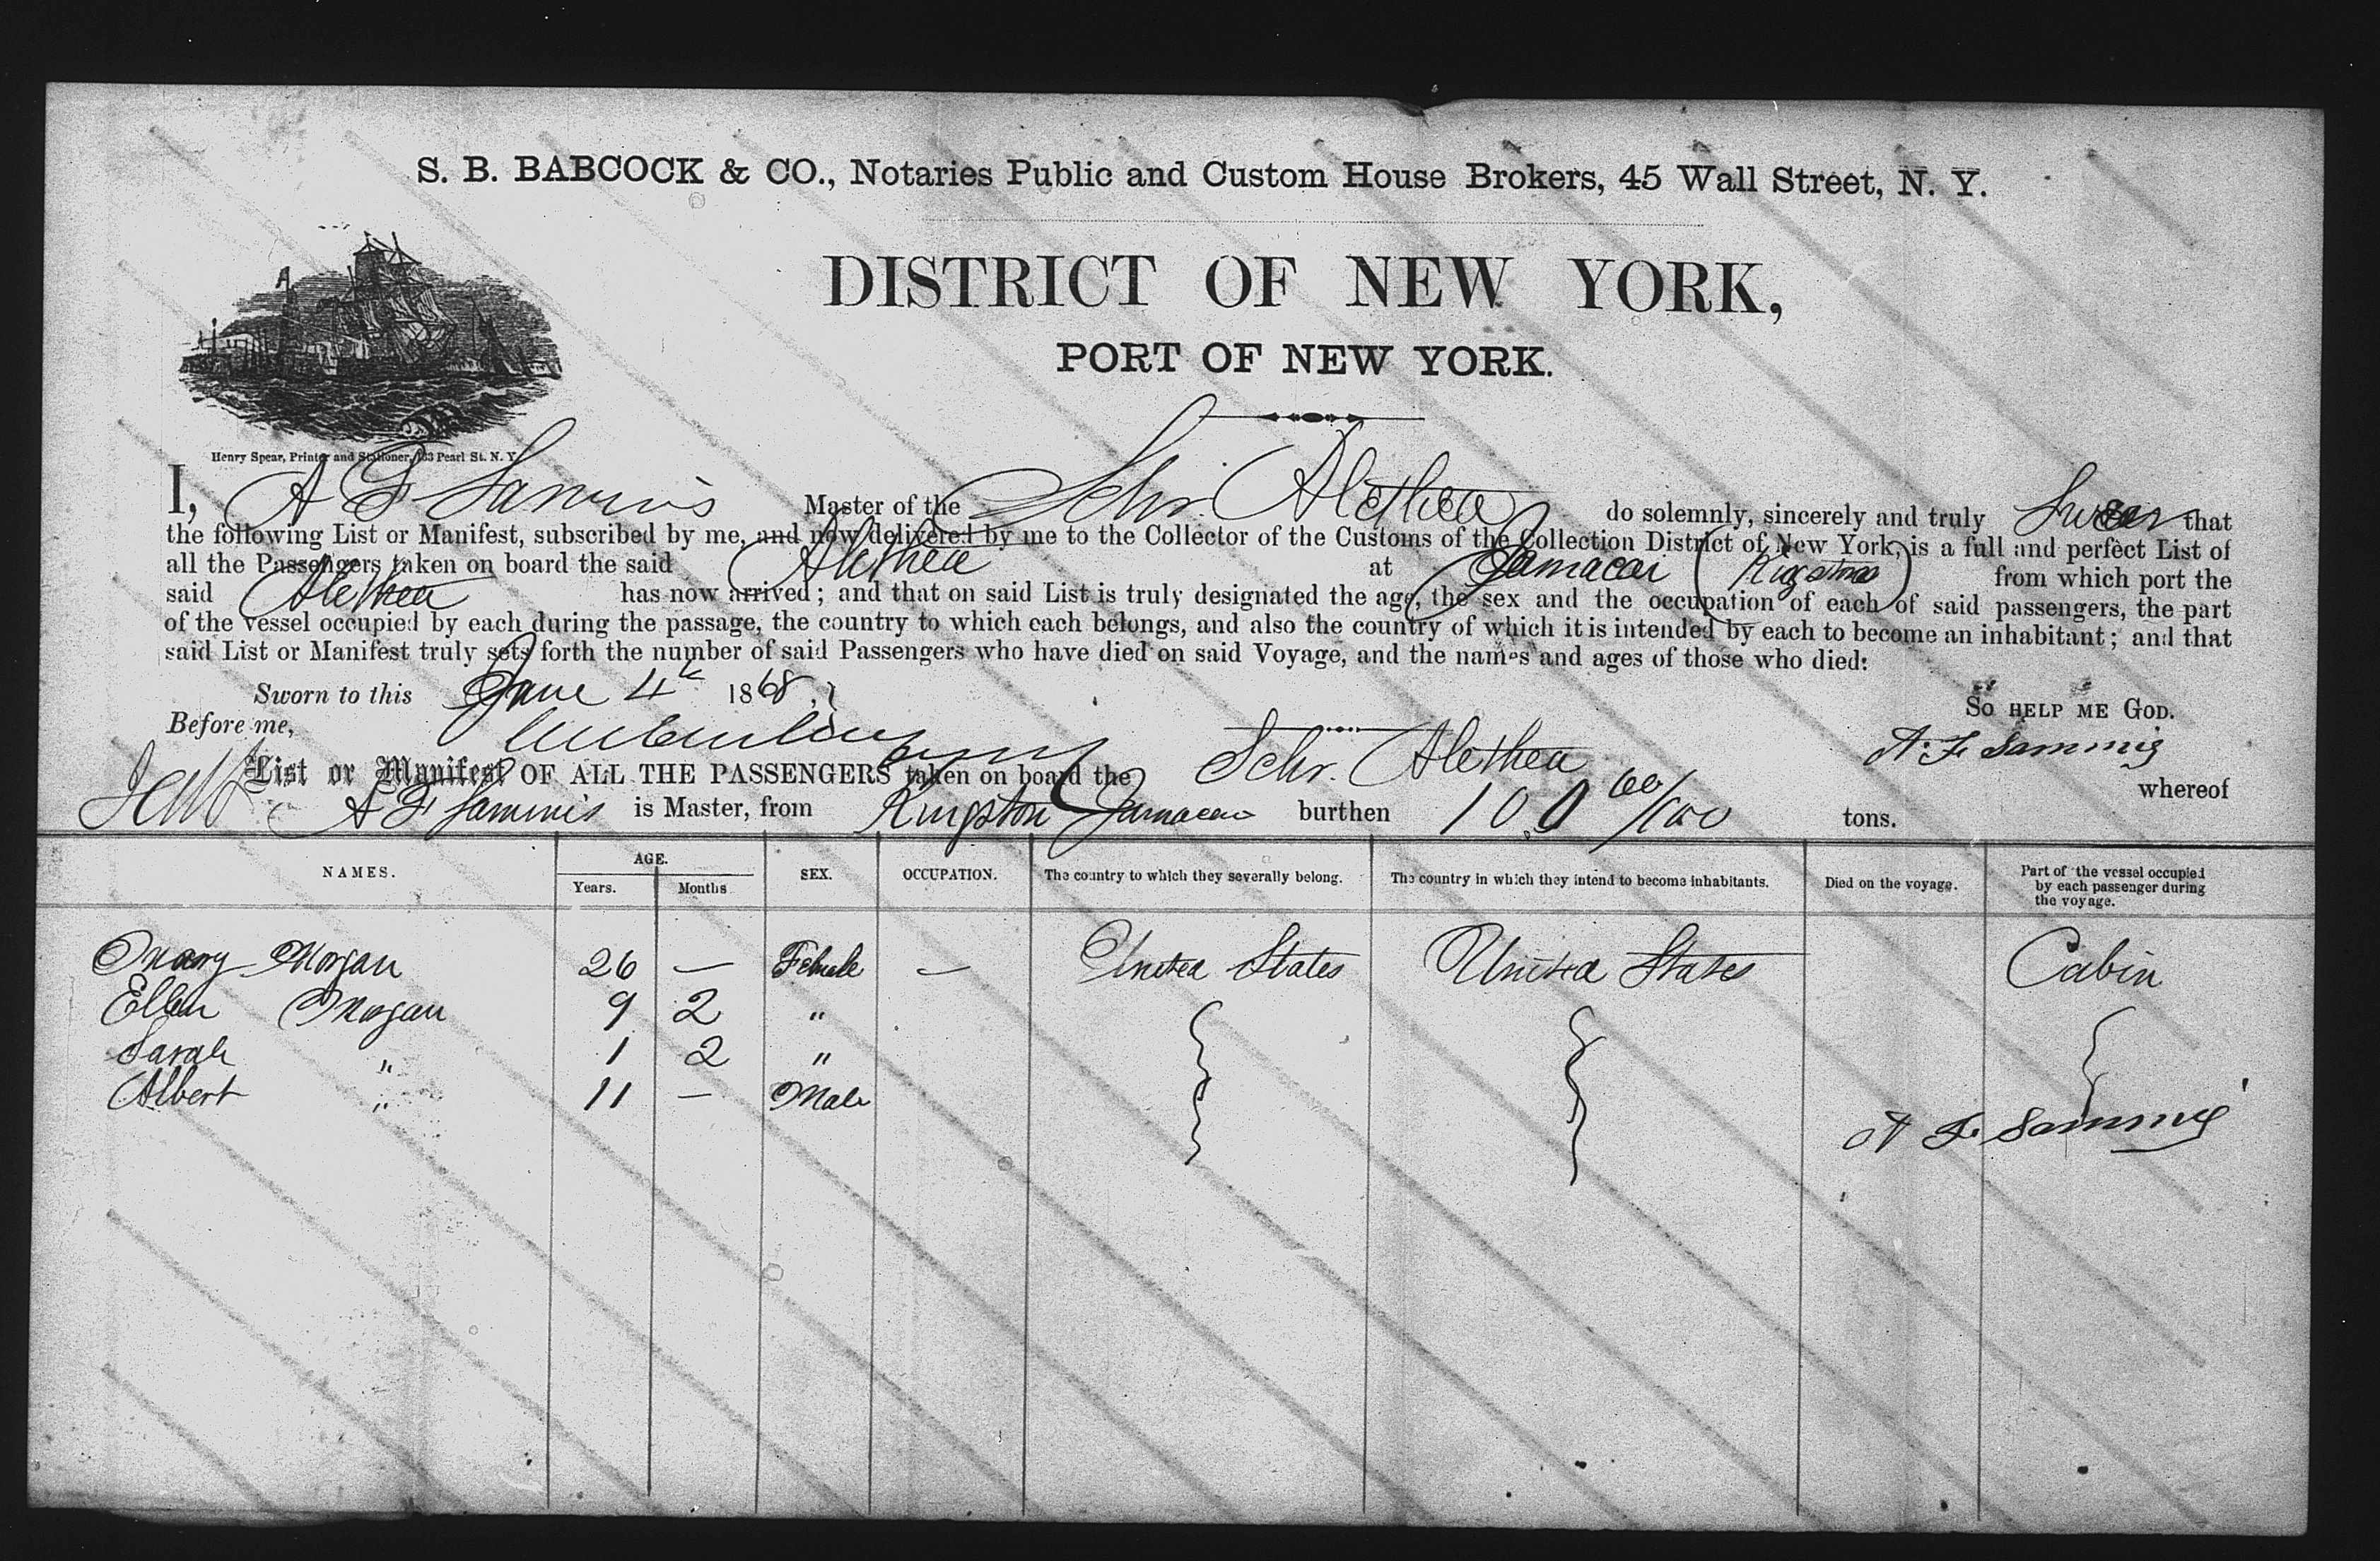 S. B. BABCOCK & CO., Notaries Public and Custom House Brokers, 45 Wall Street, N. Y.
DISTRICT OF NEW YORK,
PORT OF NEW YORK.
Henry Spear, Printer and Stationer, 133 Pearl St. N. Y.
I, A F Sammis Master of the Schr. Alethea do solemnly, sincerely and truly Swear that
the following List or Manifest, subscribed by me, and now delivered by me to the Collector of the Customs of the Collection District of New York, is a full and perfect List of
all the Passengers taken on board the said Alethea at Jamacai (Kigston) from which port the
said Alethea has now arrived; and that on said List is truly designated the age, the sex and the occupation of each of said passengers, the part
of the vessel occupied by each during the passage, the country to which each belongs, and also the country of which it is intended by each to become an inhabitant; and that
said List or Manifest truly sets forth the number of said Passengers who have died on said Voyage, and the names and ages of those who died:
Sworn to this June 4th 1868, So HELP ME GOD.
Before me, A. F. Sammis
List or Manifest OF ALL THE PASSENGERS taken on board the Schr. Alethea whereof
A F Sammis is Master, from Kingston Jamacai burthen 100 60/100 tons.
NAMES. AGE. SEX. OCCUPATION. The country to which they severally belong. The country in which they intend to become inhabitants. Died on the voyage. Part of the vessel occupied by each passenger during the voyage.
Years. Months
Mary Morgan 26 — Female — United States United States Cabin
Ellen Morgan 9 2 "
Sarah " 1 2 "
Albert " 11 — Male
A F. Sammis